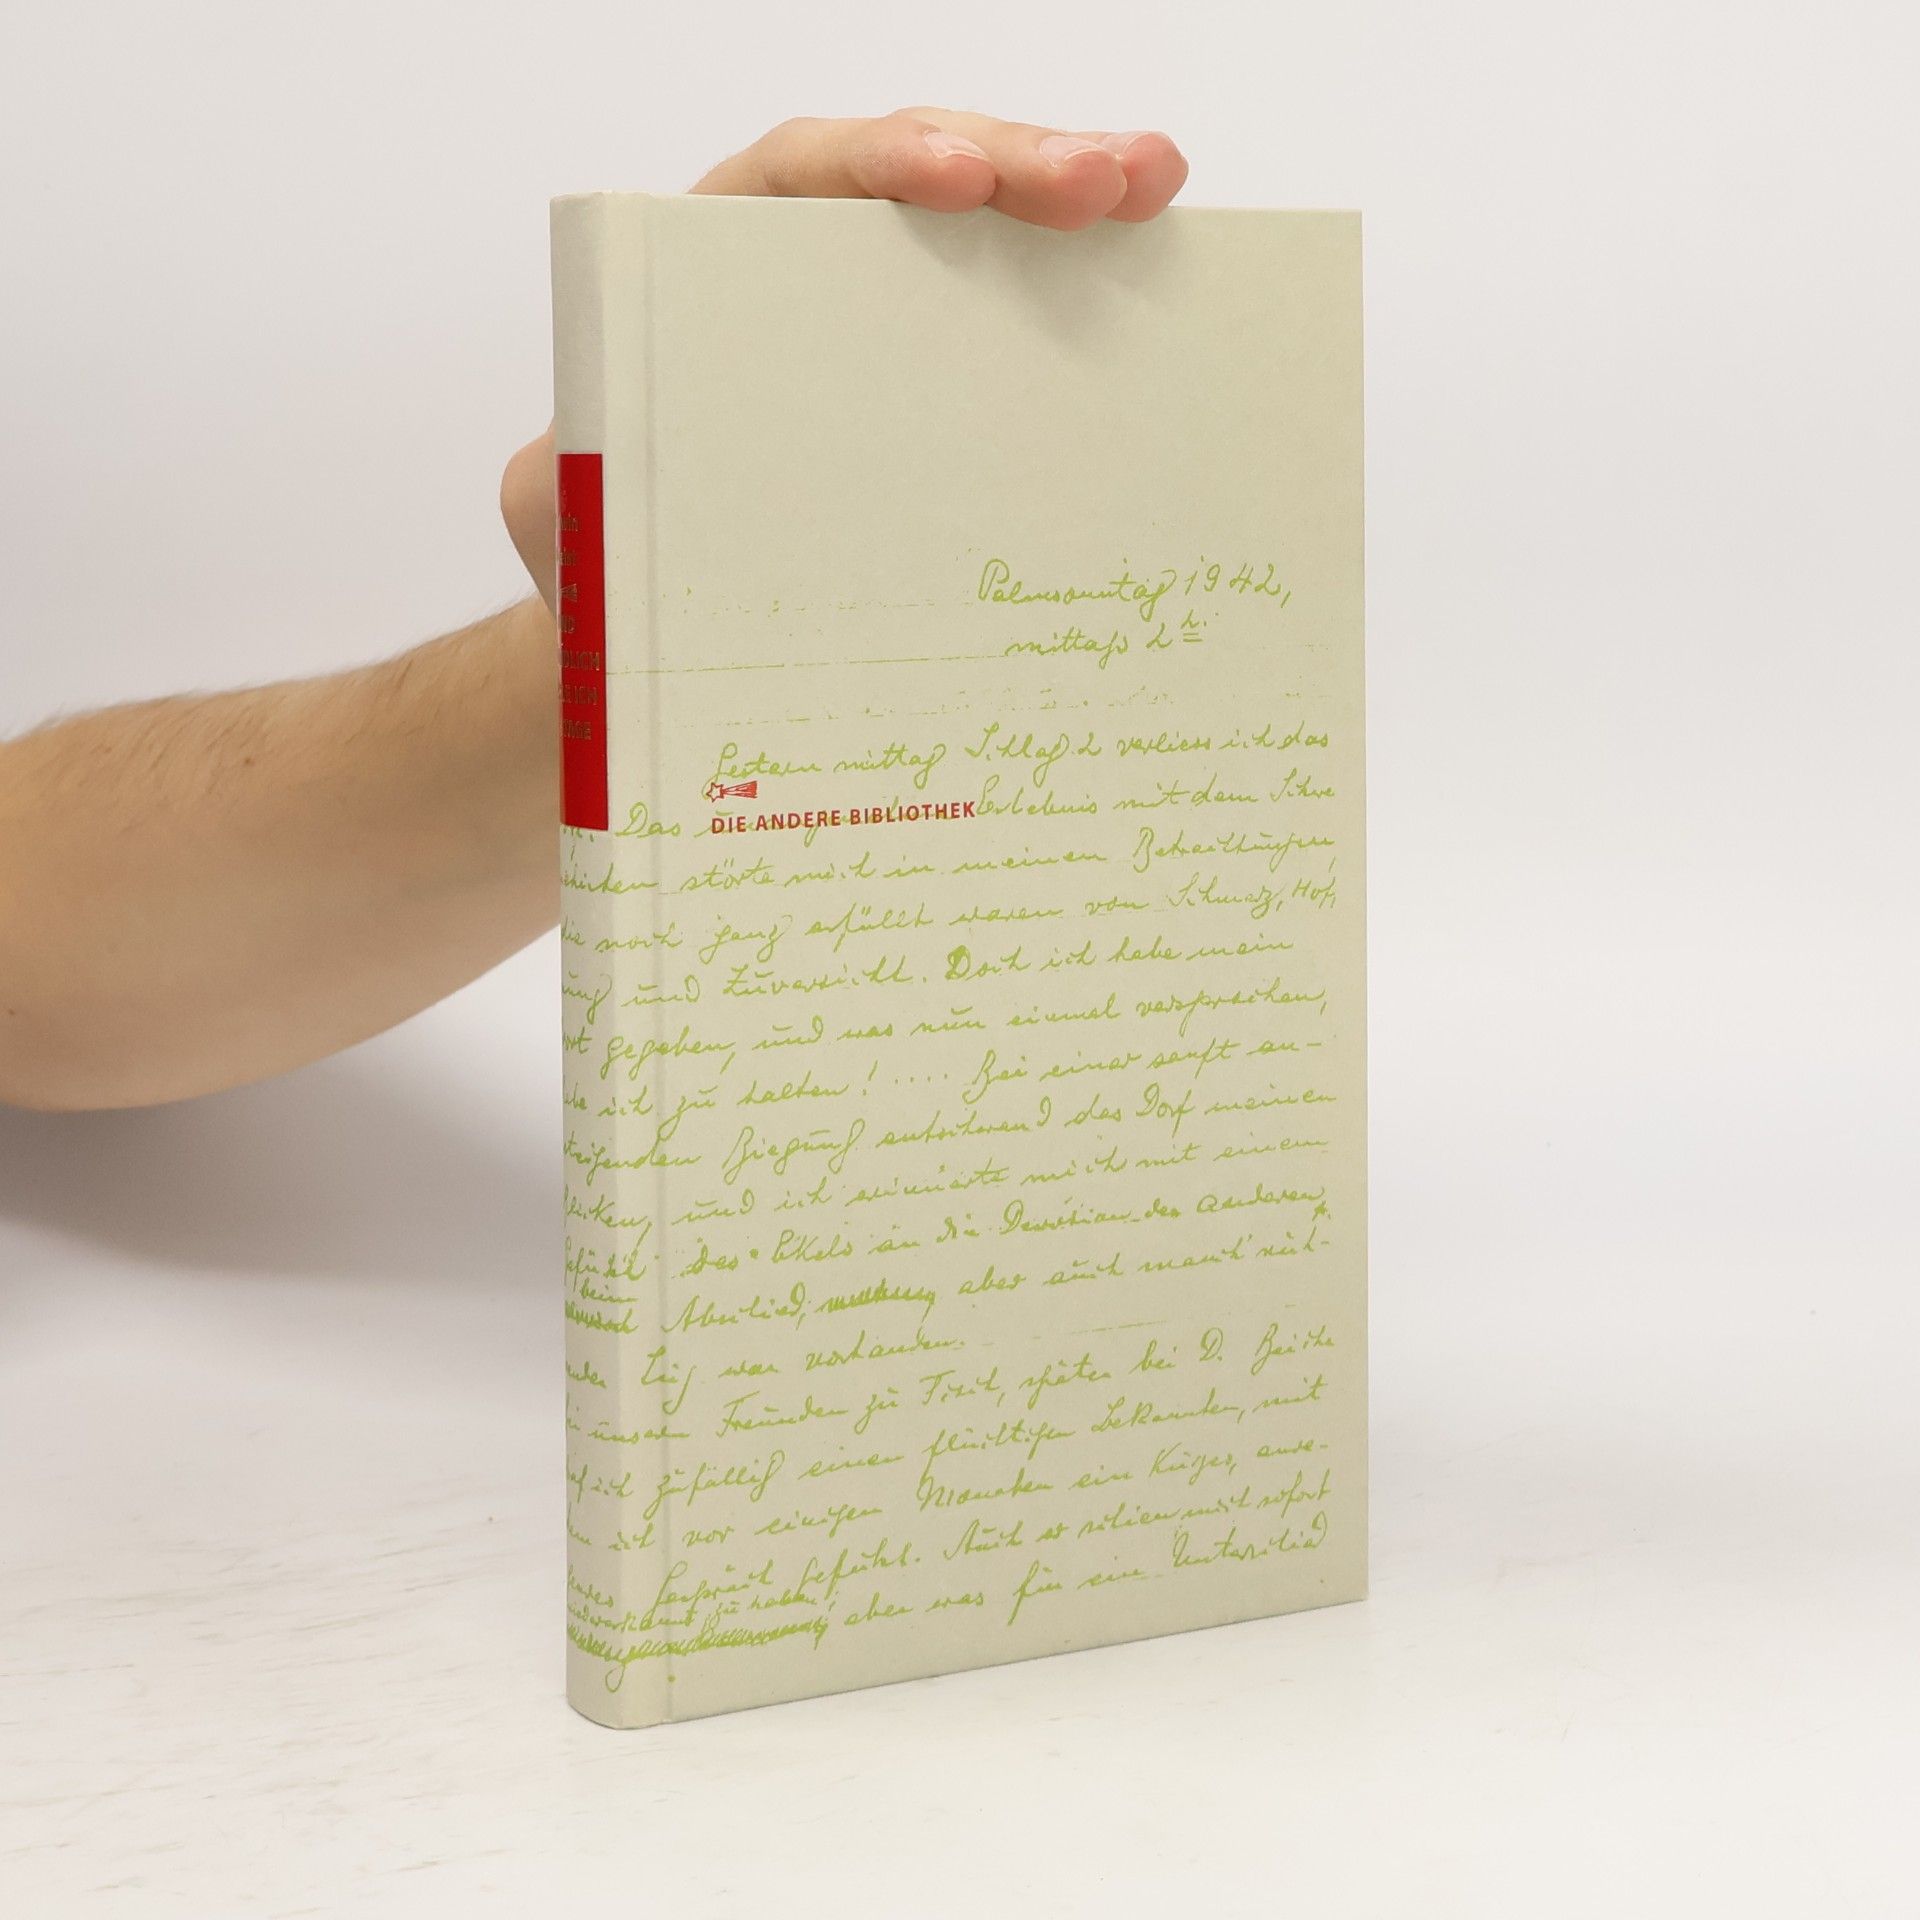 Palmsonntag 1942,
mittags 2 h.
Gestern mittag Schlag 2 verliess ich das
DIE ANDERE BIBLIOTHEK
Das Erlebnis mit dem Schwe
störte mich in meinen Betrachtungen,
die noch ganz erfüllt waren von Schmerz, Hof,
nung und Zuversicht. Doch ich habe mein
ort gegeben, und was nun einmal versprochen,
abe ich zu halten! .... Bei einer sanft an-
steigenden Biegung entschwand das Dorf meinen
Blicken, und ich erinnerte mich mit einem
Gefühl des Ekels an die Devotion der anderen
beim
Abschied, aber auch manch' rüh-
render Zug war vorhanden.
bei unsern Freunden zu Tisch, später bei D. Beiche
traf ich zufällig einen flüchtigen Bekannten, mit
dem ich vor einigen Monaten ein kurzes, anre-
gendes Gespräch geführt. Auch er schien mich sofort
wiedererkannt zu haben!
aber was für ein Unterschied
DLICH
ICH